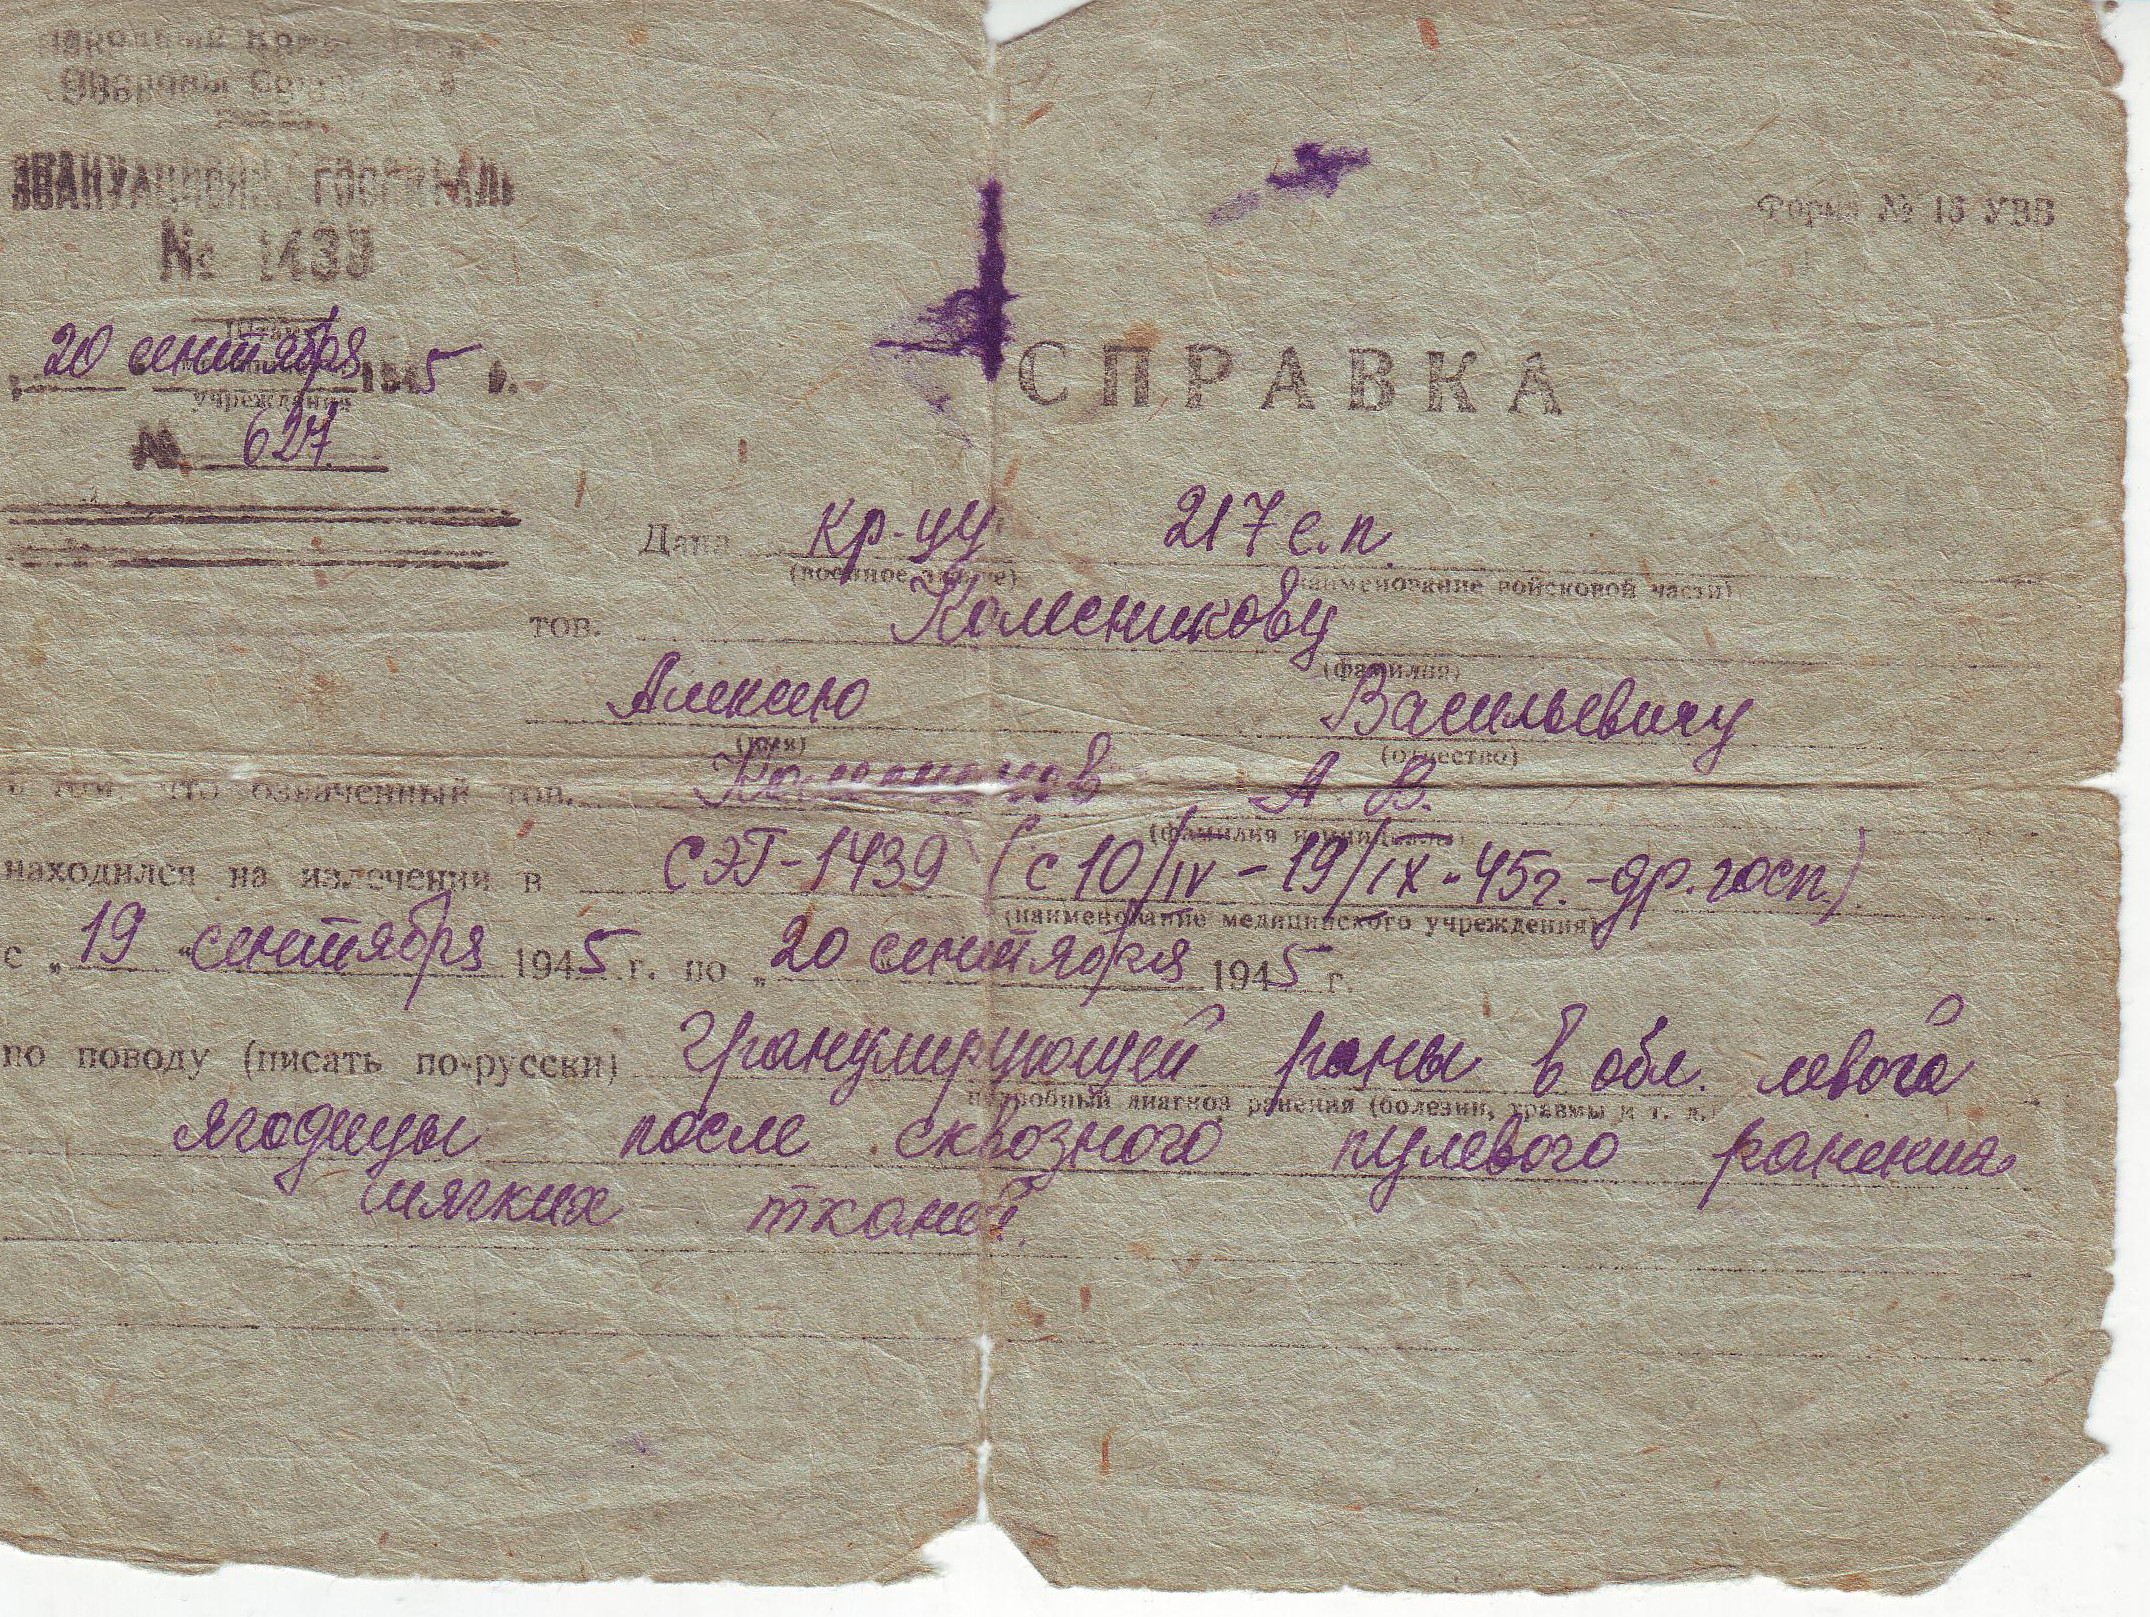 Народный Комиссариат
Обороны Союза
ЭВАКУАЦИОНН. ГОСПИТАЛЬ
№ 1439
Форма № 16 УВВ
Штамп
„ 20 сентября 1945 г.
учреждения
№ 627
СПРАВКА
Дана кр-цу 217 с.п.
(военное звание) (наименование войсковой части)
тов.
(фамилия)
Алексею Васильевичу
(имя) (отчество)
в том, что означенный тов. А. В.
(фамилия и инициалы)
находился на излечении в СЭГ-1439 (с 10/IV-19/IX-45г.-др. госп.)
(наименование медицинского учреждения)
с „ 19 “ сентября 1945 г. по „ 20 сентября 1945 г.
по поводу (писать по-русски) гранулирующей раны в обл. левого
подробный диагноз ранения (болезни, травмы и т. д.)
ягодицы после сквозного пулевого ранения
мягких тканей.